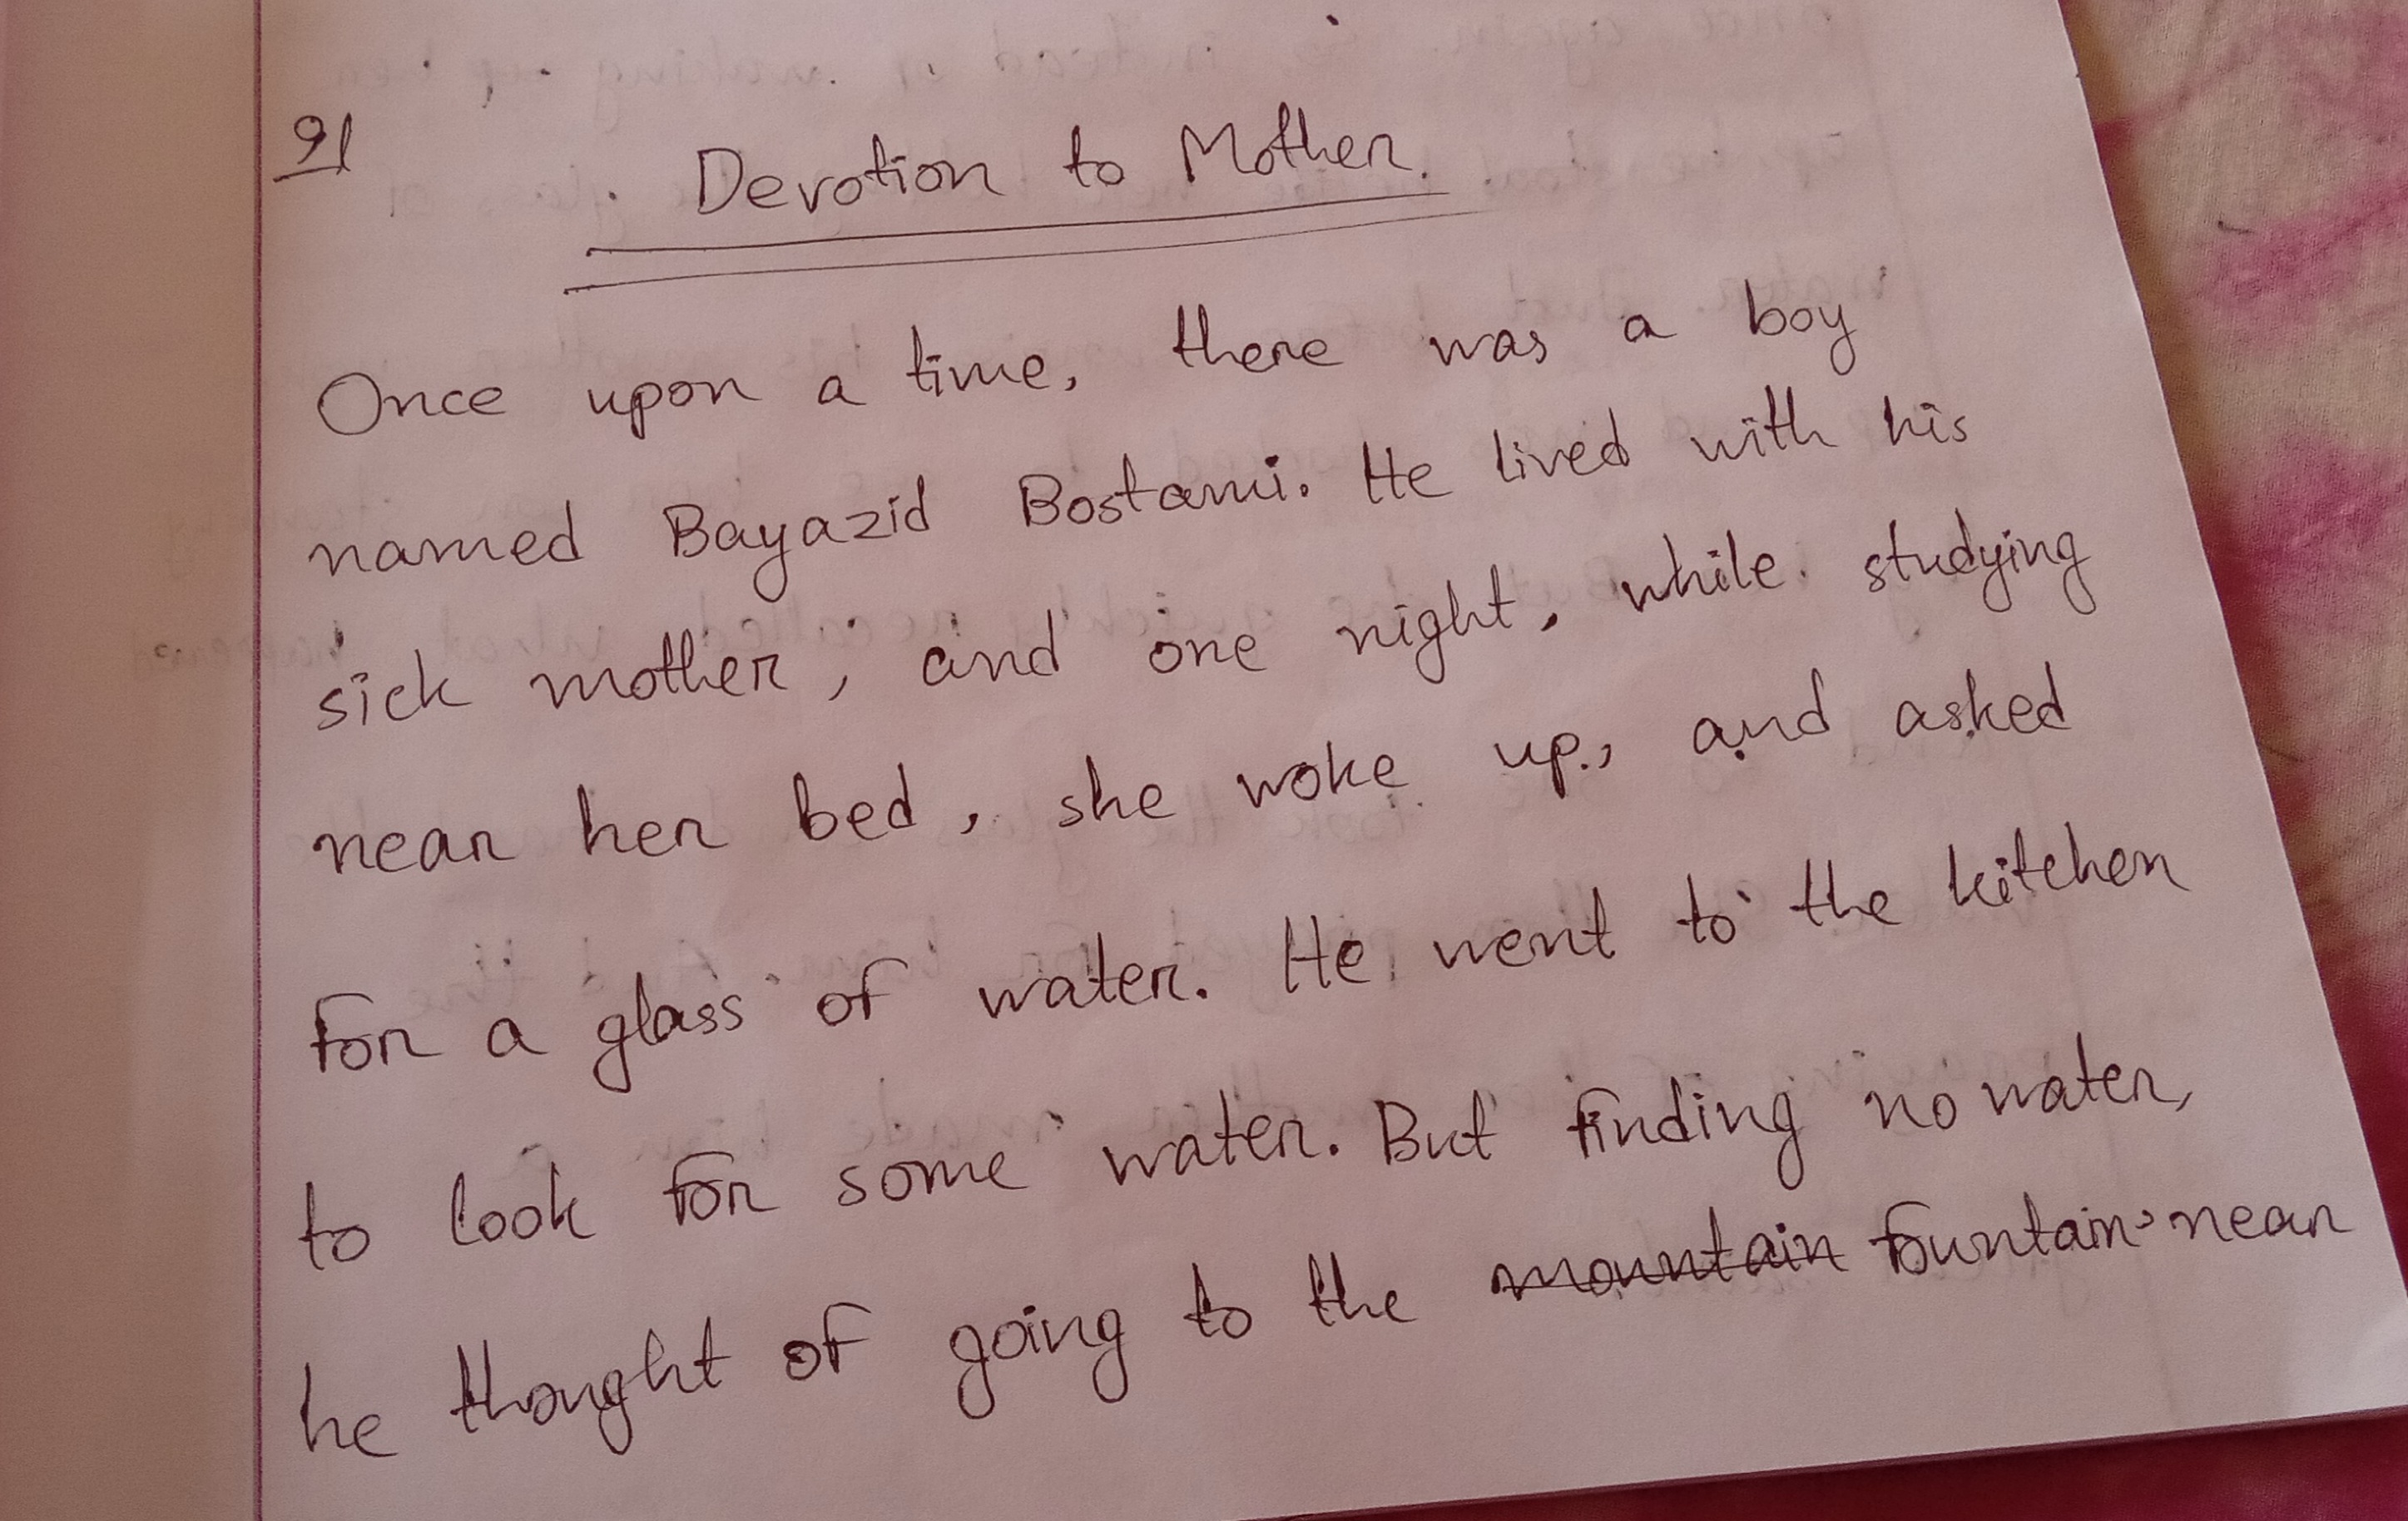 91
Devotion to Mother.
Once upon a time, there was a boy
named Bayazid Bostami. He lived with his
sick mother, and one night, while studying
near her bed, she woke up, and asked
for a glass of water. He went to the kitchen
to look for some water. But finding no water,
he thought of going to the mountain fountain near